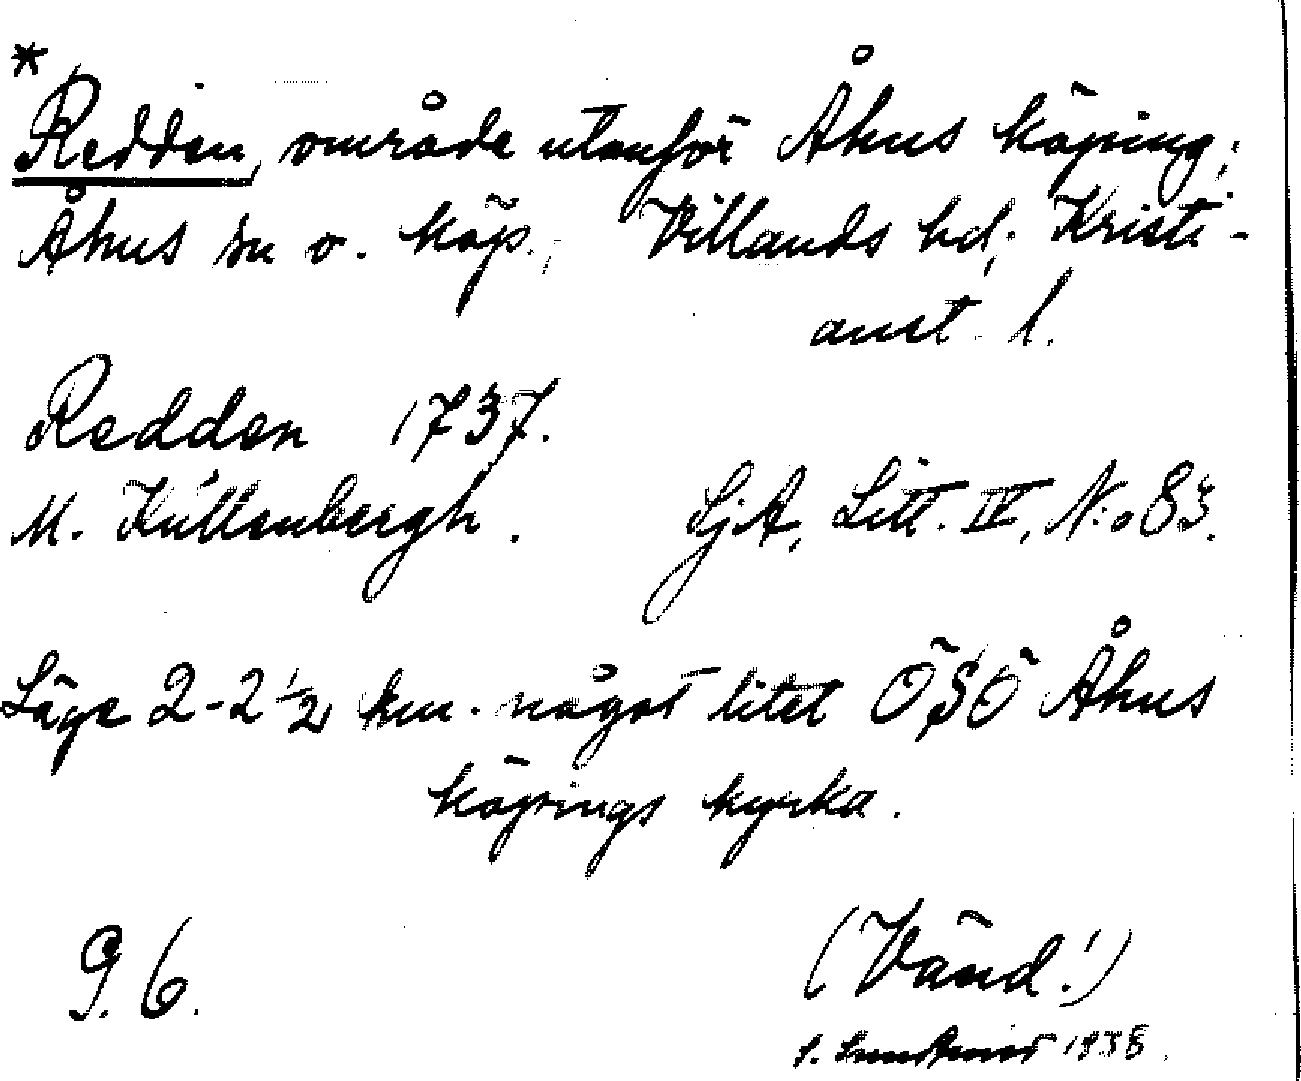 *
Redden, område utanför Åhus köping;
Åhus sn o. köp., Villands hd, Kristi-
anst. l.
Redden 1737.
M. Kúllenbergh. LjA, Litt. IV, N:o 83.
Läge 2-2½ km. något litet ÖSÖ Åhus
köpings kyrka.
9. 6. (Vänd!)
1938.